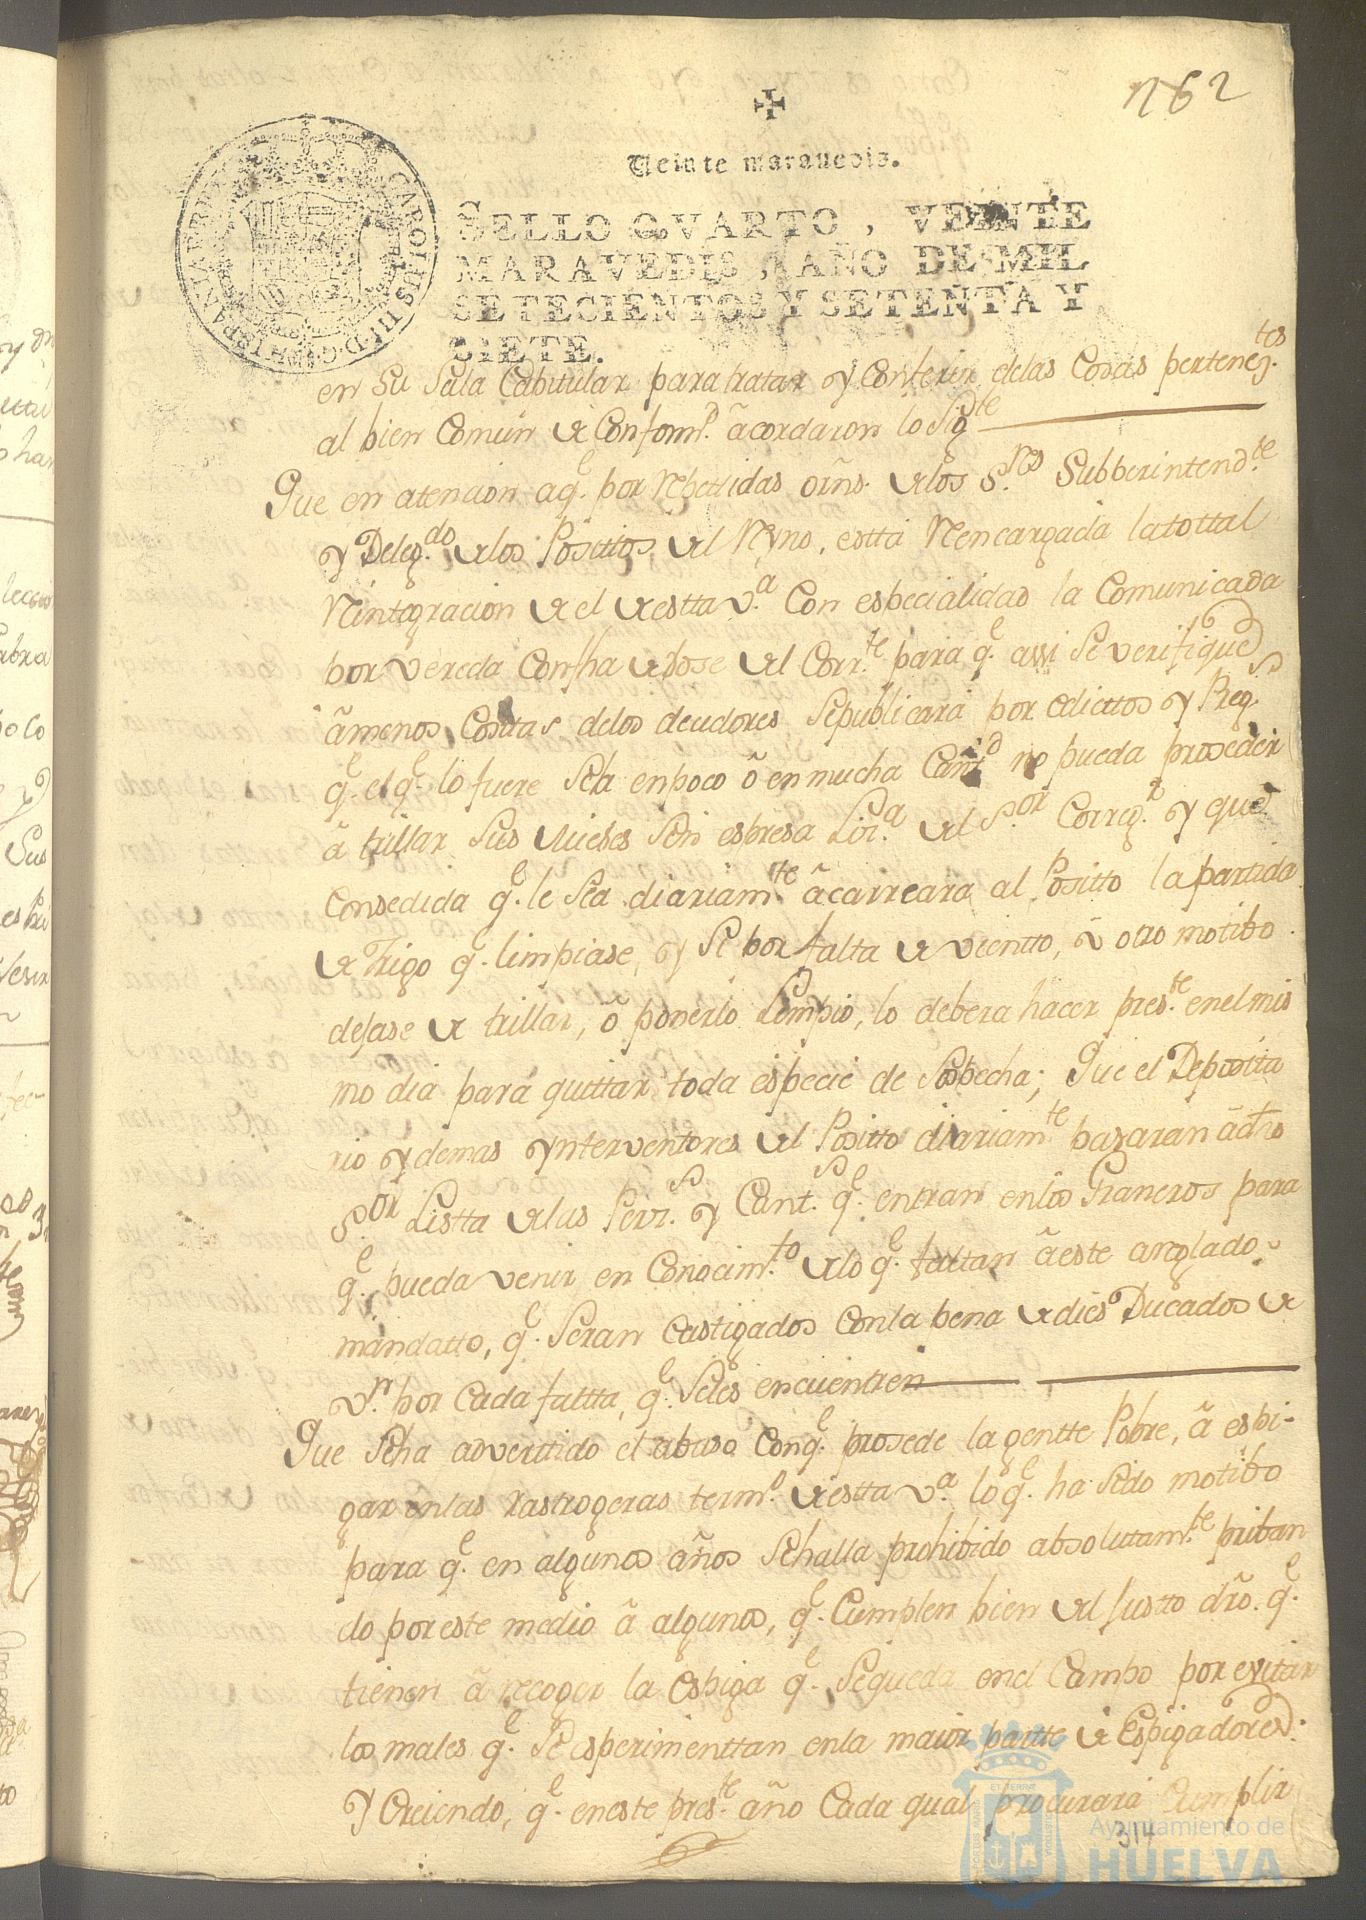 162
Veinte maravedis.
SELLO QVARTO, VEINTE
MARAVEDIS, AÑO DE MIL
SETECIENTOS Y SETENTA Y
SIETE.
CAROLUS III D. G. HISPANIAR REX
en Su Sala Capitular para tratar y Conferir delas Cosas pertenez.tes
al bien Comun de Conform.d acordaron lo Sig.te
Que en atencion aq.e por Repetidas orñs. delos S.res Subperintend.te
y Deleg.do delos Positos del Reyno, estta Reencargada latottal
Reintegracion de el de estta v.a Con especialidad la Comunicada
por vereda Confha dose del Corr.te para q.e assi Se verifique
âmenos Costas delos deudores Sepublicará por edicttos y Reg.s
q.e el q.e lo fuere Sea enpoco ô en mucha Cant.d no pueda proceder
â trillar Sus Mieses Sin espresa Liz.a del S.or Correg.r y que
Consedida q.e le Sea diariam.te âcarreara al Positto la partida
de Trigo q.e limpiase, y Si por falta de vientto, û otro motibo
dejase de trillar, ô ponerlo Limpio, lo debera hacer pres.te enel mis
mo dia para quittar toda especie de Sospecha; Que el Deposita
rio y demas ynterventores del Positto diariam.te pasaran â dho
S.or Listta delas Pers.s y Cant.s q.e entran enlos Graneros para
q.e pueda venir en Conocim.to delo q.e faltan âeste arreglado
mandatto, q.e Seran Castigados conla pena de dies Ducados de
v.n por Cada faltta, q.e Seles encuentren
Que Seha advertido el abuso Conq.e prosede la gentte Pobre, â espi-
gar enlas rastrogeras term.o de estta v.a lo q.e ha Sido motibo
para q.e en algunos años Sehalla prohibido absolutam.te priban
do por este medio â algunos, q.e Cumplen bien del Justto dro. q.e
tienen â recoger la Espiga q.e Sequeda enel Campo por evitar
los males q.e Se esperimenttan enla maior partte de Espigadores:
Y Creiendo, q.e eneste pres.te año Cada qual procurará Cumplir
314
Ayuntamiento de
HUELVA